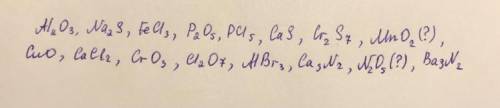 Al₂O₃, Na₂S, FeCl₃, P₂O₅, PCl₅, CaS, Cr₂S₇, MnO₂(?),
CuO, CaCl₂, CrO₃, Cl₂O₇, AlBr₃, Ca₃N₂, N₂O₅(?), Ba₃N₂